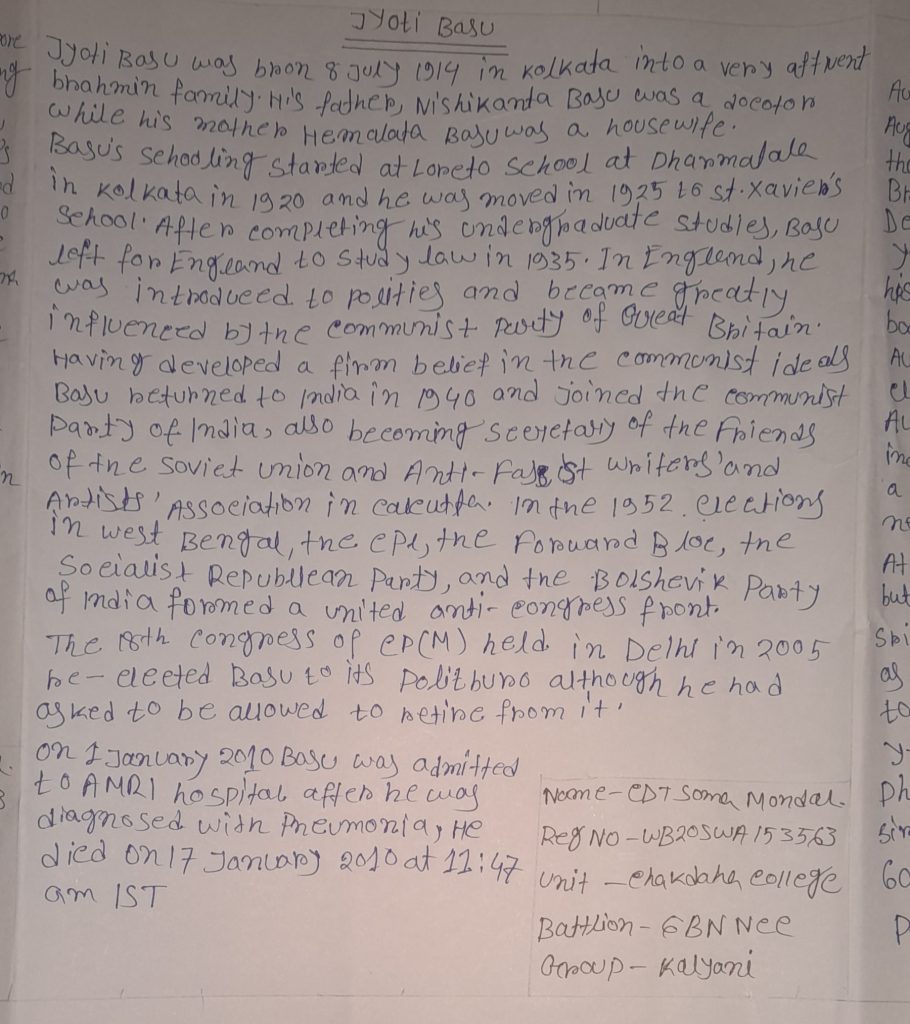 Jyoti Basu
Jyoti Basu was bron 8 July 1914 in Kolkata into a very affluent
brahmin family. His father, Nishikanta Basu was a docotor
while his mother Hemalata Basu was a housewife.
Basu's schooling started at Loreto School at Dharmatala
in Kolkata in 1920 and he was moved in 1925 to St. Xavier's
School. After completing his undergraduate studies, Basu
left for England to study law in 1935. In England, he
was introduced to politics and became greatly
influenced by the communist party of Great Britain.
Having developed a firm belief in the communist ideals
Basu returned to India in 1940 and joined the communist
Party of India, also becoming secretary of the Friends
of the Soviet Union and Anti-Fascist writers' and
Artists' Association in Calcutta. In the 1952 elections
in west Bengal, the CPI, the Forward Bloc, the
Socialist Republican Party, and the Bolshevik Party
of India formed a united anti-congress front.
The 18th congress of CP(M) held in Delhi in 2005
re-elected Basu to its Politburo although he had
asked to be allowed to retire from it.
on 1 January 2010 Basu was admitted
to AMRI hospital after he was
diagnosed with Pneumonia, He
died on 17 January 2010 at 11:47
am IST
Name - CDT Soma Mondal.
Reg NO - WB20SWA153563
Unit - Chakdaha College
Battlion - 6BN NCC
Group - Kalyani